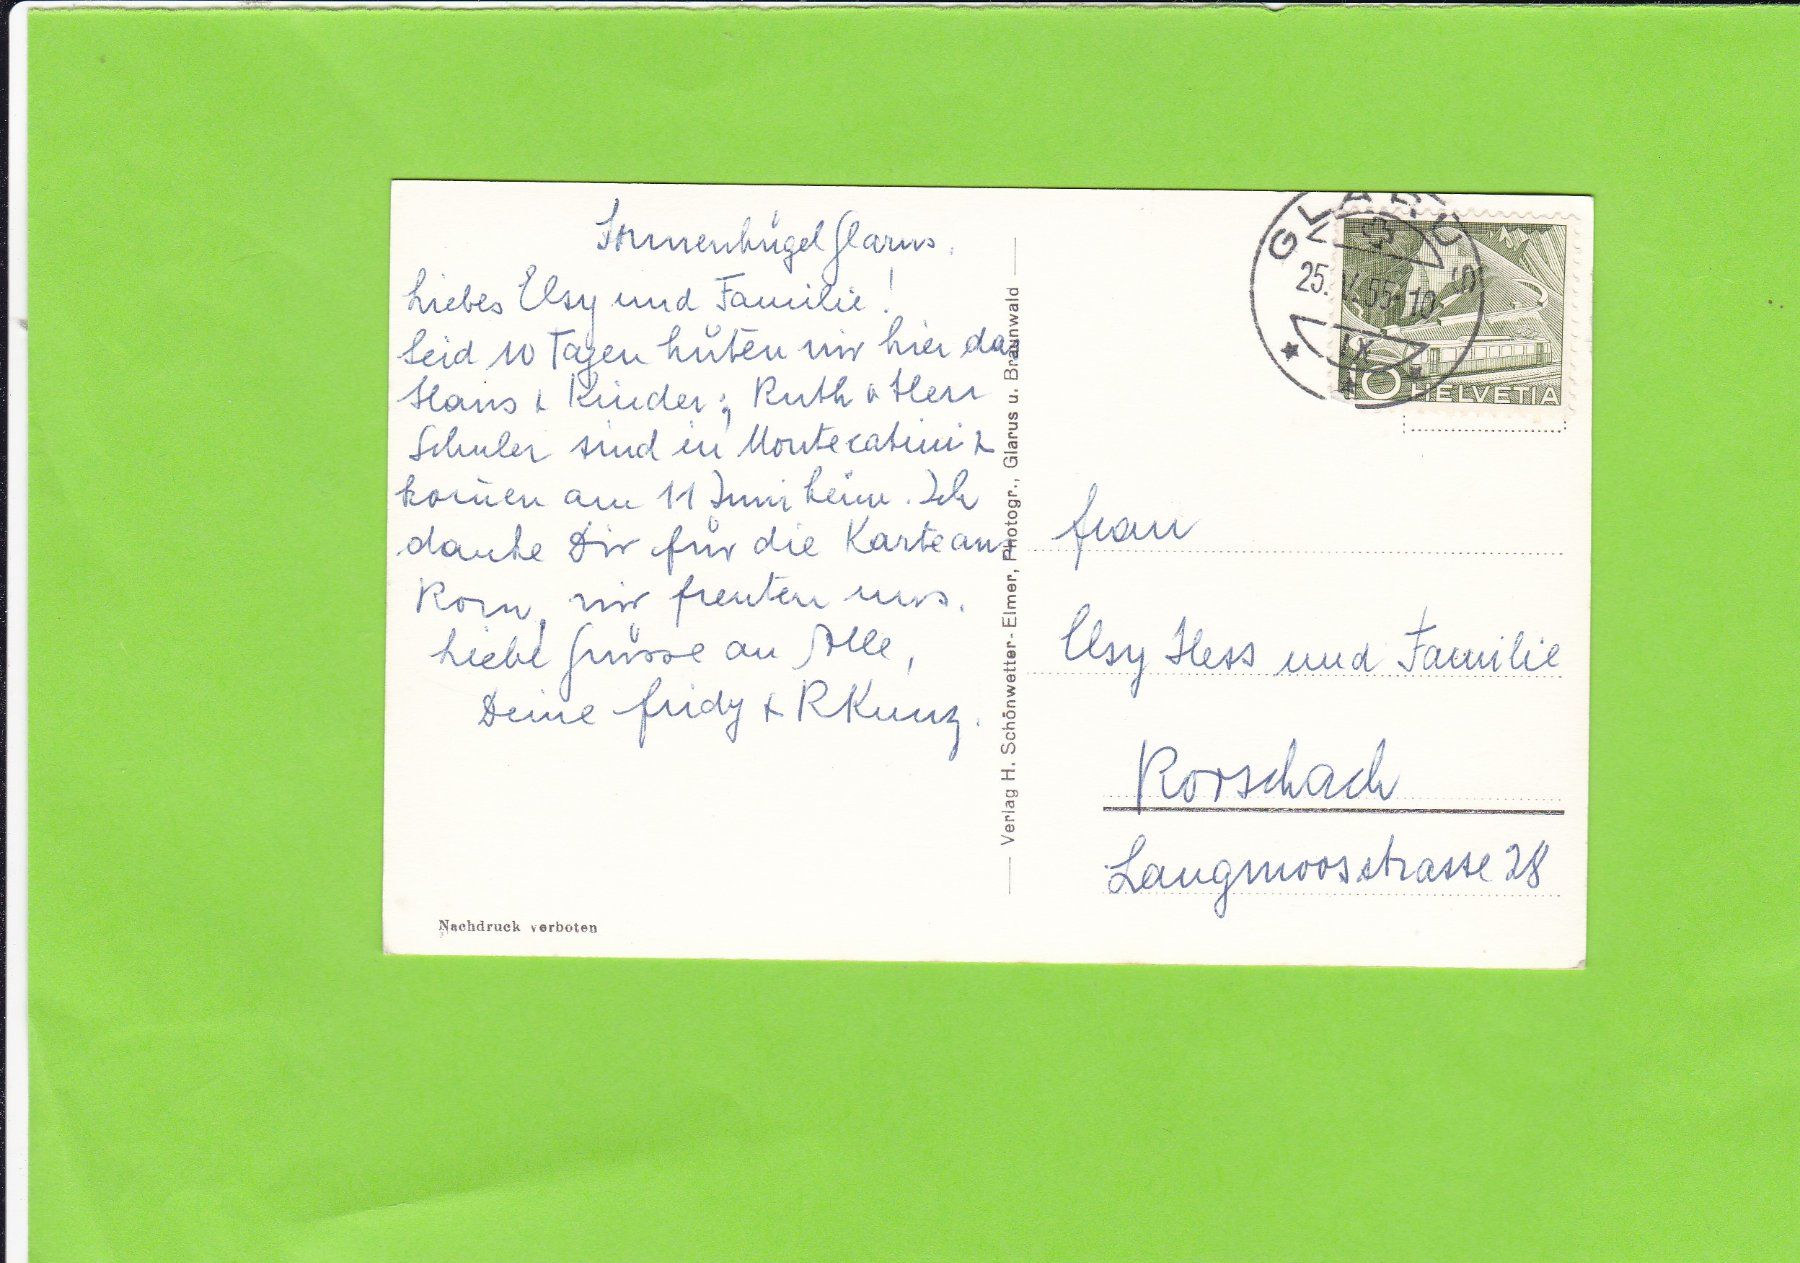 Sonnenhügel Glarus.
Liebes Elsy und Familie!
Seid 10 Tagen hüten wir hier das
Haus & Kinder; Ruth & Herr
Schuler sind in Montecatini &
kom̄en am 11 Juni heim. Ich
danke Dir für die Karte aus
Rom, wir freuten uns.
Liebe Grüsse an Alle,
Deine Fridy & R Kunz.
Nachdruck verboten
Verlag H. Schönwetter-Elmer, Photogr., Glarus u. Braunwald
GLARUS
25. V. 55-10
IX
10 HELVETIA
Frau
Elsy Hess und Familie
Rorschach
Langmoosstrasse 28